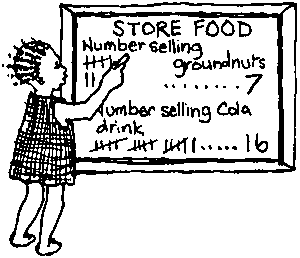 STORE FOOD
Number selling
groundnuts
𝍸 ||
........ 7
Number selling Cola
drink
𝍸 𝍸 𝍸 | ..... 16